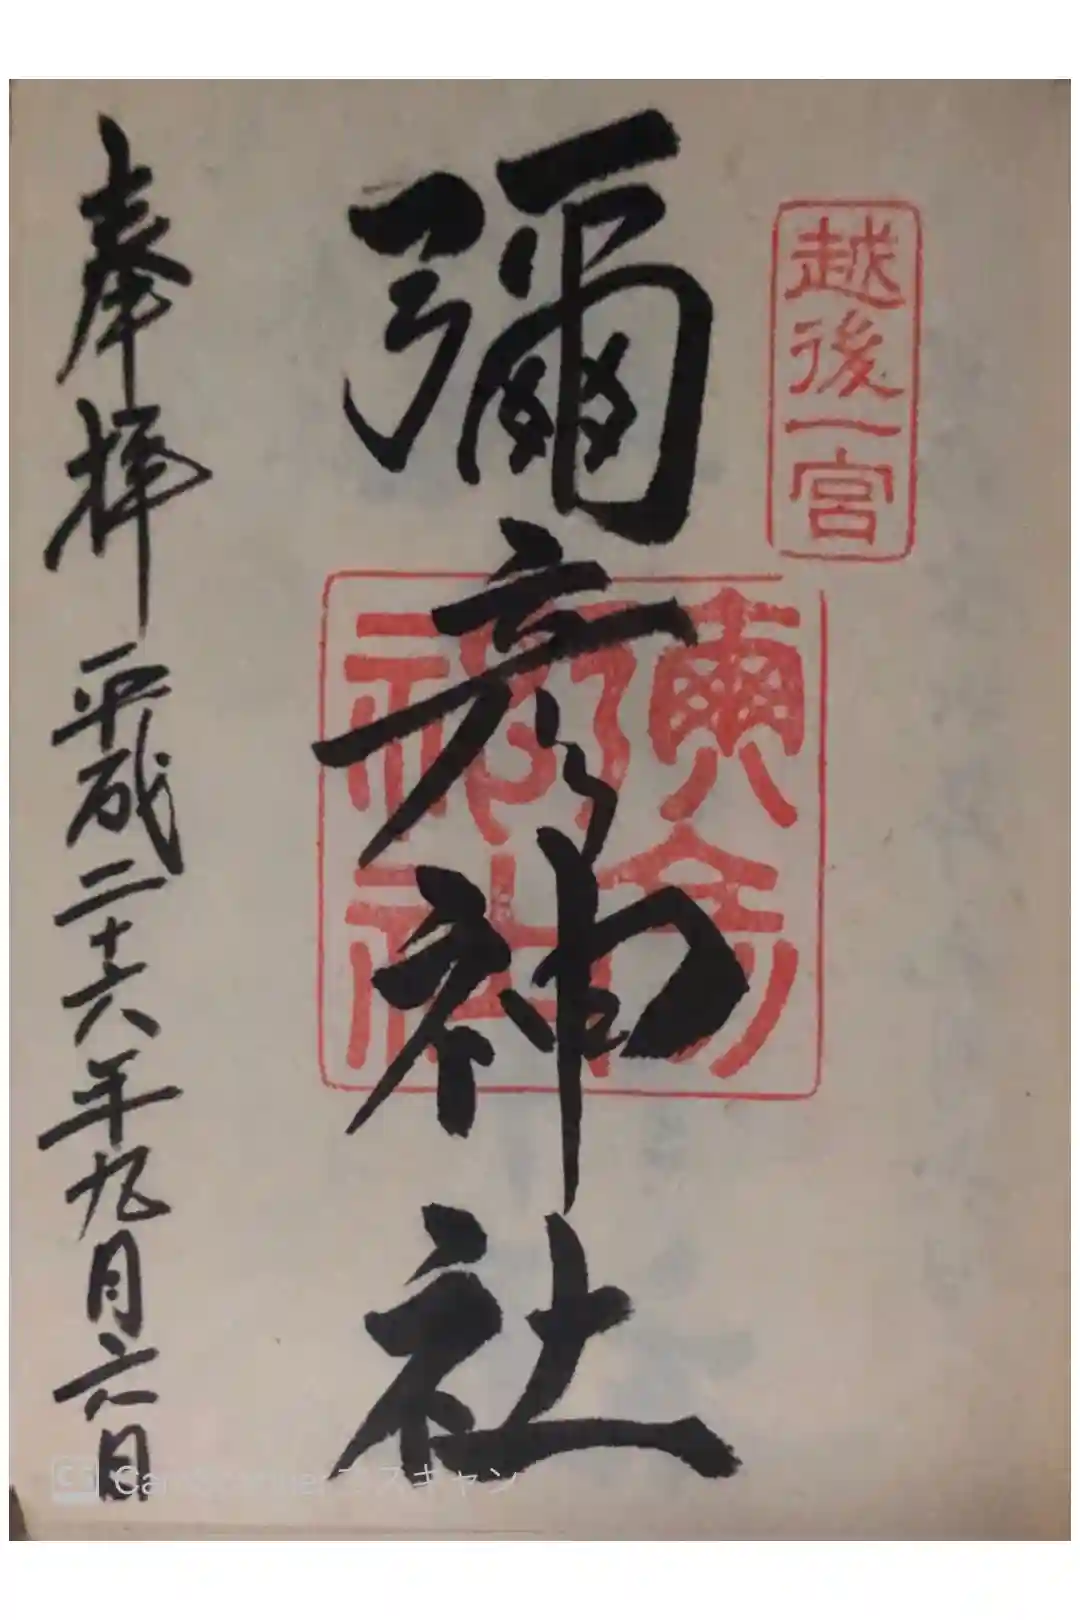 越後一宮
彌彦神社
奉拝 平成二十六年九月六日
CamScanner でスキャン